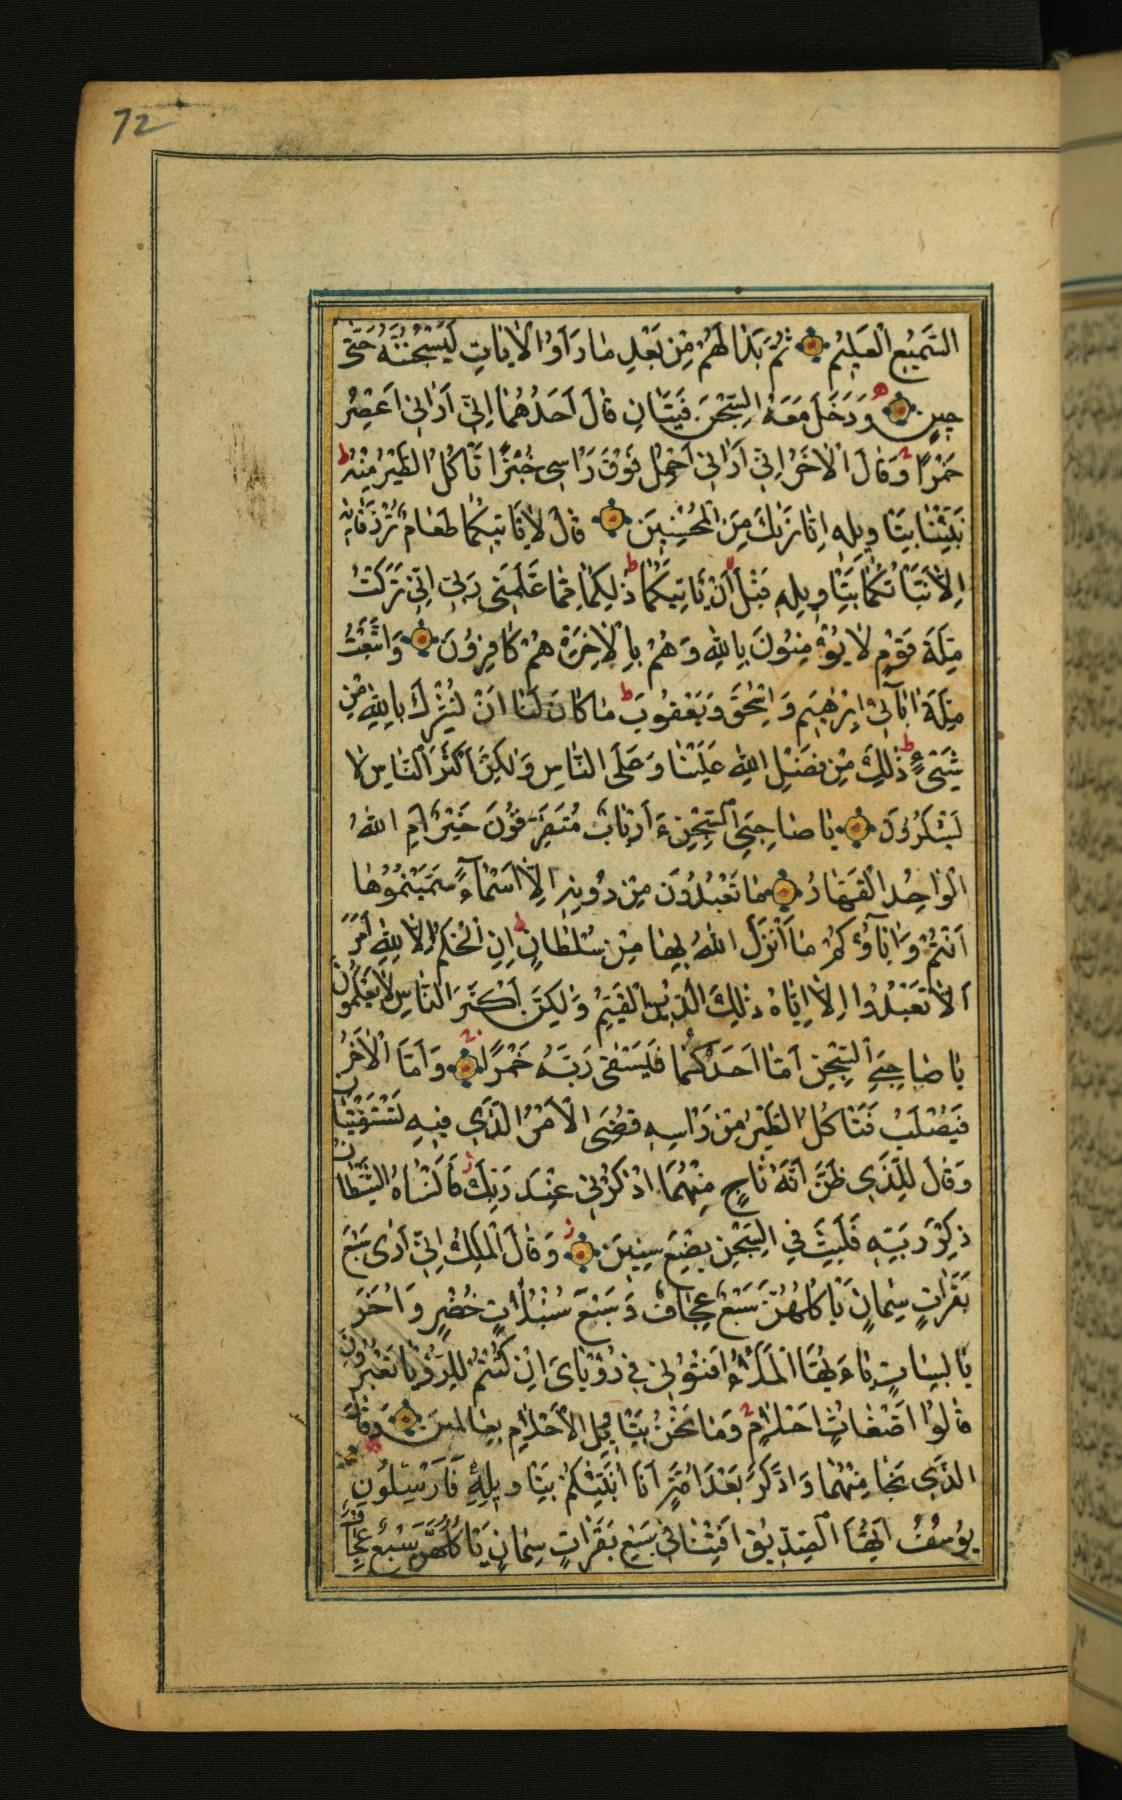 72
السَّمِيعُ الْعَلِيمُ ثُمَّ بَدَا لَهُمْ مِنْ بَعْدِ مَا رَأَوُا الْاٰيَاتِ لَيَسْجُنُنَّهُ حَتّٰى
حِينٍ وَدَخَلَ مَعَهُ السِّجْنَ فَتَيَانِ قَالَ اَحَدُهُمَا اِنِّي اَرَانِي اَعْصِرُ
خَمْرًا وَقَالَ الْاٰخَرُ اِنِّي اَرَانِي اَحْمِلُ فَوْقَ رَاْسِي خُبْزًا تَاْكُلُ الطَّيْرُ مِنْهُ ط
نَبِّئْنَا بِتَاْوِيلِهِ اِنَّا نَرٰيكَ مِنَ الْمُحْسِنِينَ قَالَ لَا يَاْتِيكُمَا طَعَامٌ تُرْزَقَانِهِ
اِلَّا نَبَّاْتُكُمَا بِتَاْوِيلِهِ قَبْلَ اَنْ يَاْتِيَكُمَا ط ذٰلِكُمَا مِمَّا عَلَّمَنِي رَبِّي اِنِّي تَرَكْتُ
مِلَّةَ قَوْمٍ لَا يُؤْمِنُونَ بِاللّٰهِ وَهُمْ بِالْاٰخِرَةِ هُمْ كَافِرُونَ وَاتَّبَعْتُ
مِلَّةَ اٰبَآئِي اِبْرٰهِيمَ وَاِسْحٰقَ وَيَعْقُوبَ ط مَا كَانَ لَنَا اَنْ نُشْرِكَ بِاللّٰهِ مِنْ
شَيْءٍ ط ذٰلِكَ مِنْ فَضْلِ اللّٰهِ عَلَيْنَا وَعَلَى النَّاسِ وَلٰكِنَّ اَكْثَرَ النَّاسِ لَا
يَشْكُرُونَ يَا صَاحِبَيِ السِّجْنِ ءَاَرْبَابٌ مُتَفَرِّقُونَ خَيْرٌ اَمِ اللّٰهُ
الْوَاحِدُ الْقَهَّارُ مَا تَعْبُدُونَ مِنْ دُونِهِ اِلَّا اَسْمَآءً سَمَّيْتُمُوهَا
اَنْتُمْ وَاٰبَآؤُكُمْ مَا اَنْزَلَ اللّٰهُ بِهَا مِنْ سُلْطَانٍ ط اِنِ الْحُكْمُ اِلَّا لِلّٰهِ اَمَرَ
اَلَّا تَعْبُدُوا اِلَّا اِيَّاهُ ذٰلِكَ الدِّينُ الْقَيِّمُ وَلٰكِنَّ اَكْثَرَ النَّاسِ لَا يَعْلَمُونَ
يَا صَاحِبَيِ السِّجْنِ اَمَّا اَحَدُكُمَا فَيَسْقِي رَبَّهُ خَمْرًا وَاَمَّا الْاٰخَرُ
فَيُصْلَبُ فَتَاْكُلُ الطَّيْرُ مِنْ رَاْسِهِ قُضِيَ الْاَمْرُ الَّذِي فِيهِ تَسْتَفْتِيَانِ
وَقَالَ لِلَّذِي ظَنَّ اَنَّهُ نَاجٍ مِنْهُمَا اذْكُرْنِي عِنْدَ رَبِّكَ فَاَنْسَاهُ الشَّيْطَانُ
ذِكْرَ رَبِّهِ فَلَبِثَ فِي السِّجْنِ بِضْعَ سِنِينَ وَقَالَ الْمَلِكُ اِنِّي اَرٰى سَبْعَ
بَقَرَاتٍ سِمَانٍ يَاْكُلُهُنَّ سَبْعٌ عِجَافٌ وَسَبْعَ سُنْبُلَاتٍ خُضْرٍ وَاُخَرَ
يَابِسَاتٍ يَاءَيُّهَا الْمَلَاُ اَفْتُونِي فِي رُؤْيَايَ اِنْ كُنْتُمْ لِلرُّؤْيَا تَعْبُرُونَ
قَالُوا اَضْغَاثُ اَحْلَامٍ وَمَا نَحْنُ بِتَاْوِيلِ الْاَحْلَامِ بِعَالِمِينَ وَقَالَ
الَّذِي نَجَا مِنْهُمَا وَادَّكَرَ بَعْدَ اُمَّةٍ اَنَا اُنَبِّئُكُمْ بِتَاْوِيلِهِ فَاَرْسِلُونِ
يُوسُفُ اَيُّهَا الصِّدِّيقُ اَفْتِنَا فِي سَبْعِ بَقَرَاتٍ سِمَانٍ يَاْكُلُهُنَّ سَبْعٌ عِجَافٌ